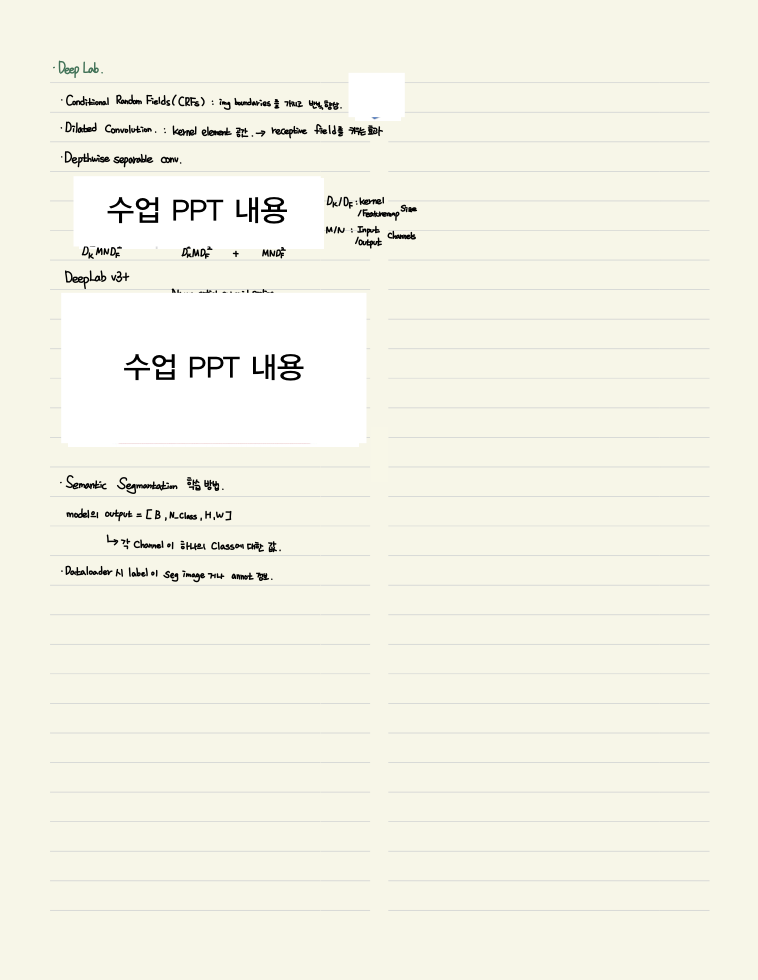 · Deep Lab.
· Conditional Random Fields (CRFs) : img boundaries를 가지고
· Dilated Convolution. : kernel element 공간. → receptive field를 키우는 효과
· Depthwise separable conv.
수업 PPT 내용
DK/DF : kernel /Featuremap Size
M/N : Input /output Channels
DK²MNDF² DK²MDF² + MNDF²
DeepLab v3+
수업 PPT 내용
· Semantic Segmantation 학습 방법.
model의 output = [B, N_class, H, W]
↳ 각 Channel이 하나의 Class에 대한 값.
· Dataloader 시 label이 seg image 거나 annot 정보.